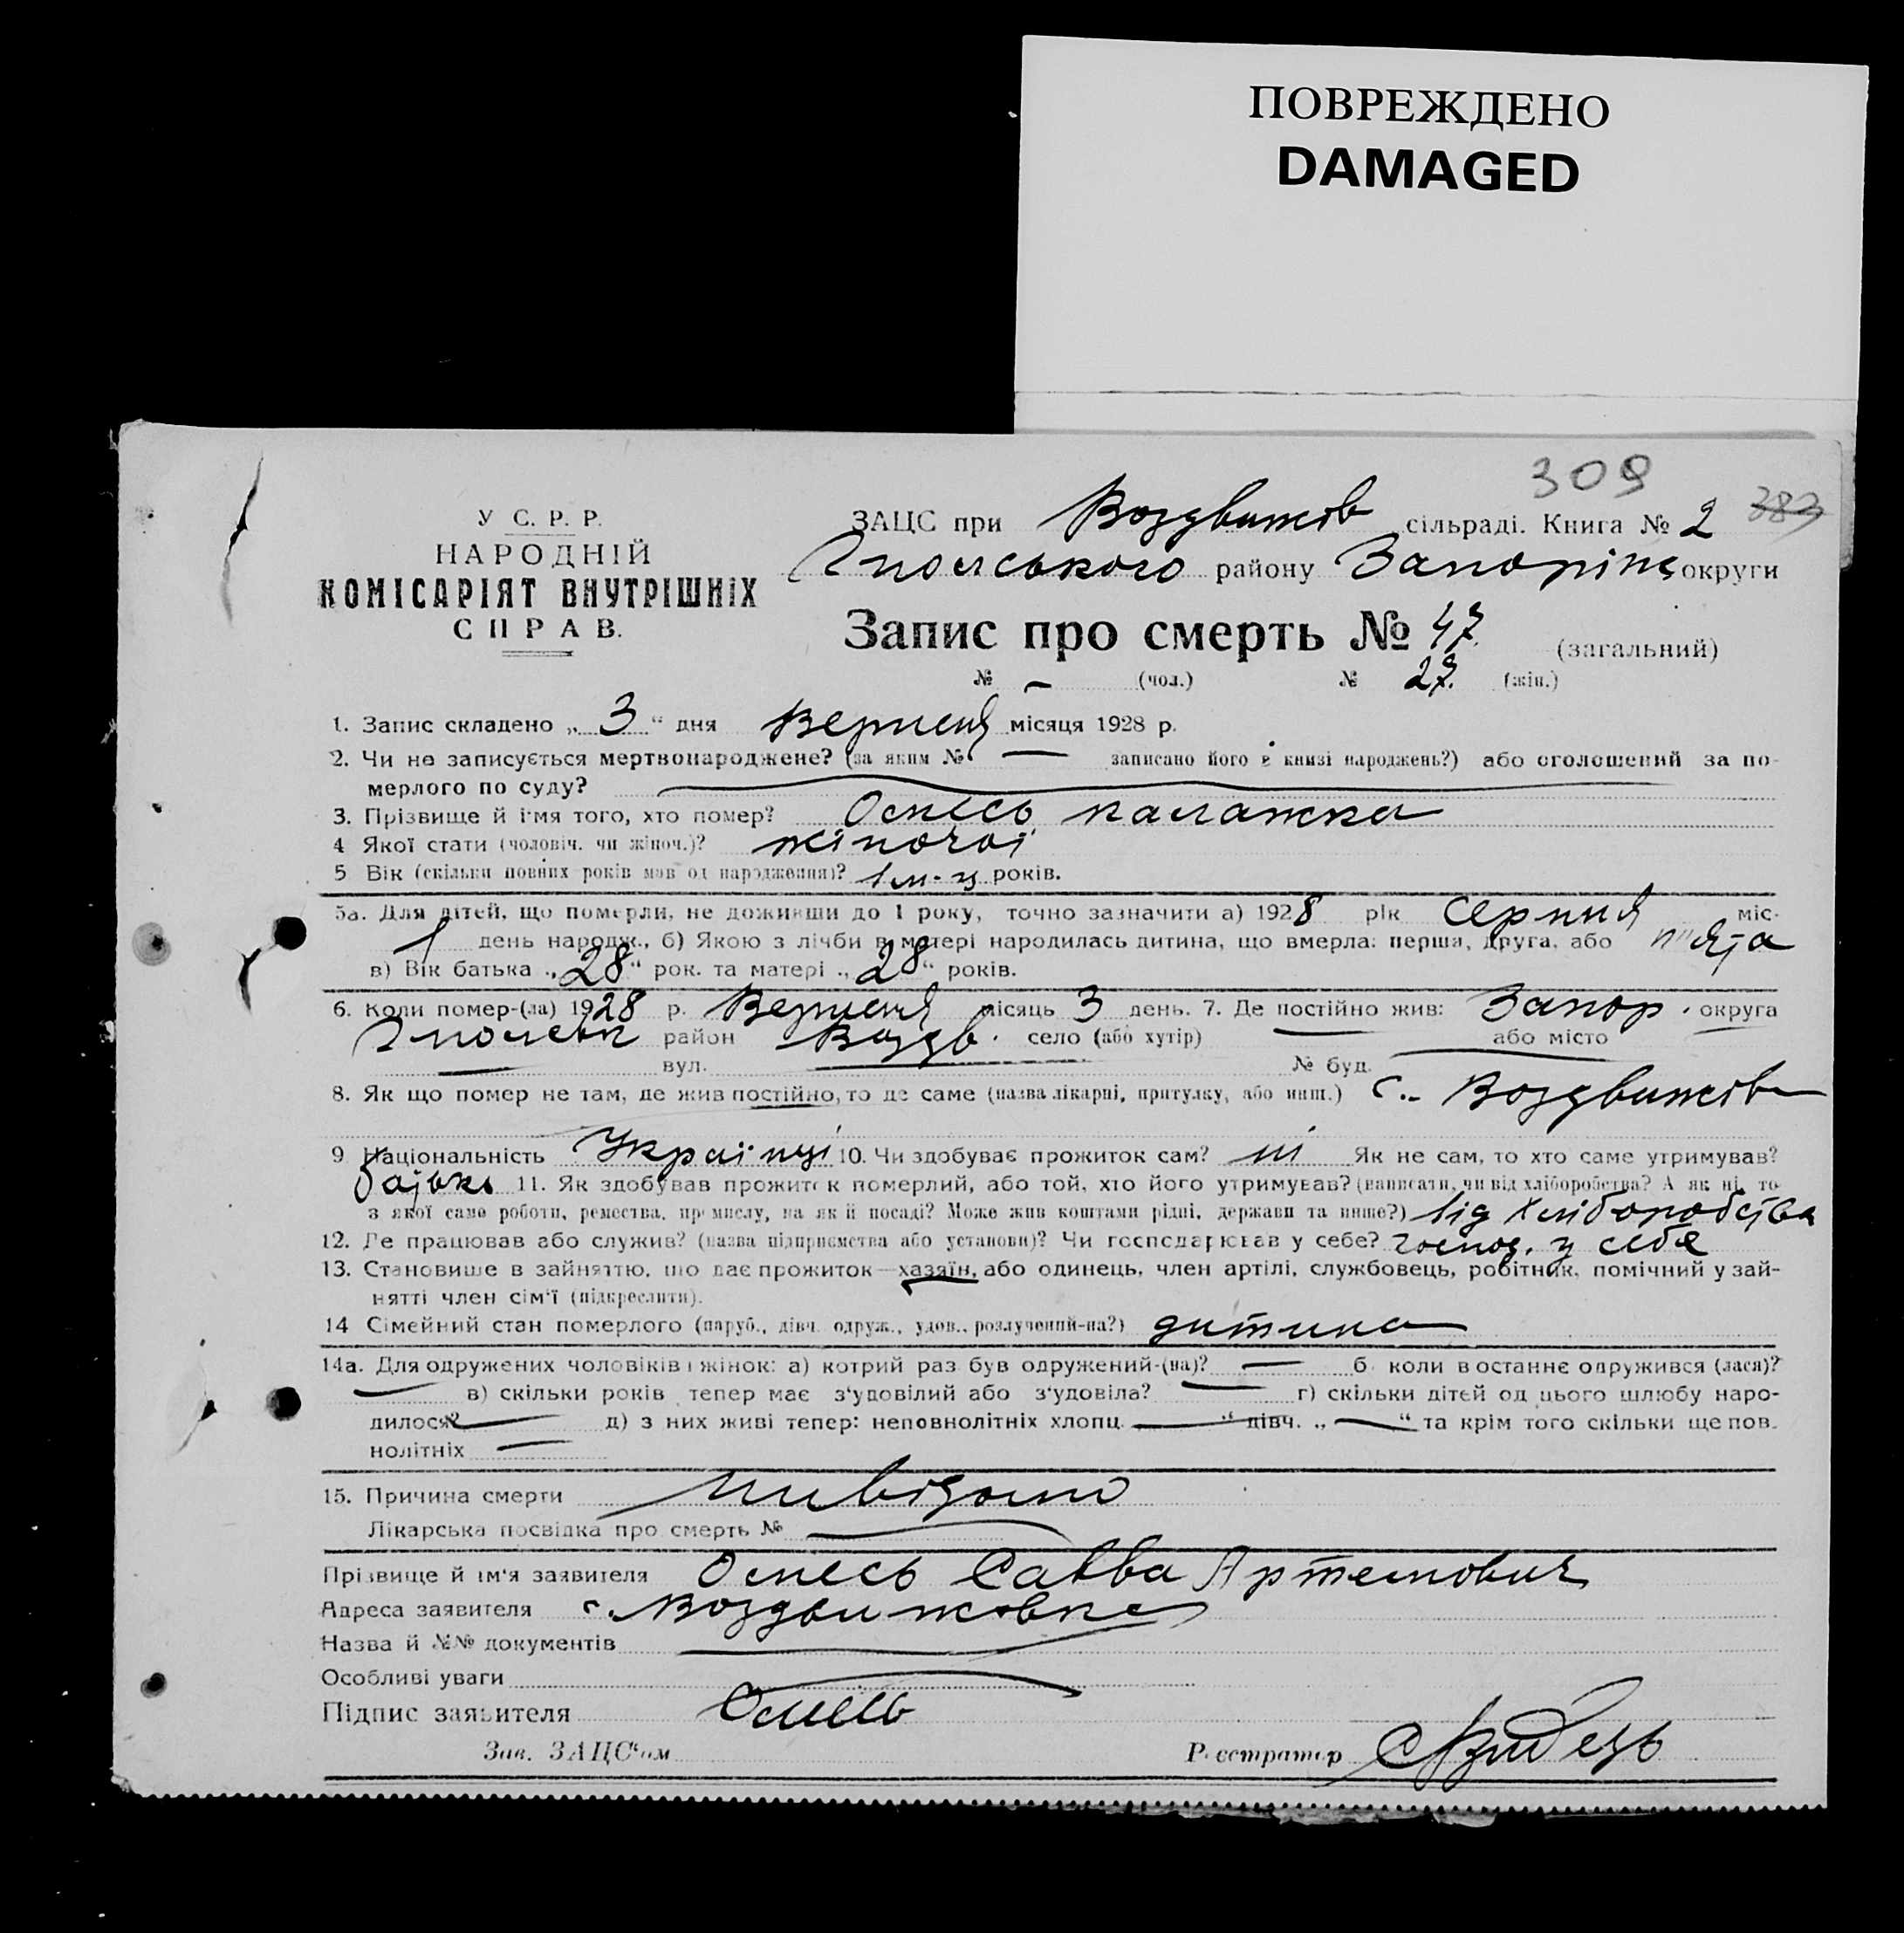 ПОВРЕЖДЕНО
DAMAGED
309
У С. Р. Р.
НАРОДНІЙ
КОМІСАРІЯТ ВНУТРІШНІХ
СПРАВ.
ЗАЦС при Воздвижів сільраді. Книга № 2 383
району Запоріж округи
Запис про смерть № 47 (загальний)
№ – (чол.) № 27. (жін.)
1. Запис складено „ 3 “ дня Вересня місяця 1928 р.
2. Чи не записується мертвонароджене? (за яким № — записано його в книзі народжень?) або оголошений за по-
мерлого по суду?
3. Прізвище й ім'я того, хто помер? палажка
4 Якої стати (чоловіч. чи жіноч.)? жіночої
5 Вік (скільки повних років мав од народження)? 1 м-ц років.
5а. Для дітей, що померли, не доживши до 1 року, точно зазначити а) 1928 рік Серпня міс.
1 день народж., б) Якою з лічби в матері народилась дитина, що вмерла: перша, друга, або п'ята
в) Вік батька „ 28 “ рок. та матері „ 28 “ років.
6. Коли помер-(ла) 1928 р. Вересня місяць 3 день. 7. Де постійно жив: Запор. округа
район Воздв. село (або хутір) — або місто
— вул. — № буд.
8. Як що помер не там, де жив постійно, то де саме (назва лікарні, притулку, або инш.) с. Воздвижів
9 Національність Українці 10. Чи здобуває прожиток сам? ні Як не сам, то хто саме утримував?
батько 11. Як здобував прожиток померлий, або той, хто його утримував? (написати, чи від хліборобства? А як ні, то
з якої саме роботи, ремества, промислу, на якій посаді? Може жив коштами рідні, держави та инше?) від хліборобства
12. Де працював або служив? (назва підприємства або установи)? Чи господарював у себе? господ. у себе
13. Становище в зайняттю, що дає прожиток—хазяїн, або одинець, член артілі, службовець, робітник, помічний у зай-
нятті член сім'ї (підкреслити).
14 Сімейний стан померлого (паруб., дівч. одруж., удов., розлучений-на?) дитина
14а. Для одружених чоловіків і жінок: а) котрий раз був одружений-(на)? — б. коли в останнє одружився (лася)?
— в) скільки років тепер має з'удовілий або з'удовіла? — г) скільки дітей од цього шлюбу наро-
дилося? — д) з них живі тепер: неповнолітніх хлопц. — “ дівч. „ — “ та крім того скільки ще пов.
нолітніх —
15. Причина смерти
Лікарська посвідка про смерть № —
Прізвище й ім'я заявителя Савва Артемович
Адреса заявителя с. Воздвижовка
Назва й №№ документів —
Особливі уваги —
Підпис заявителя
Зав. ЗАЦС'ом Реєстратор